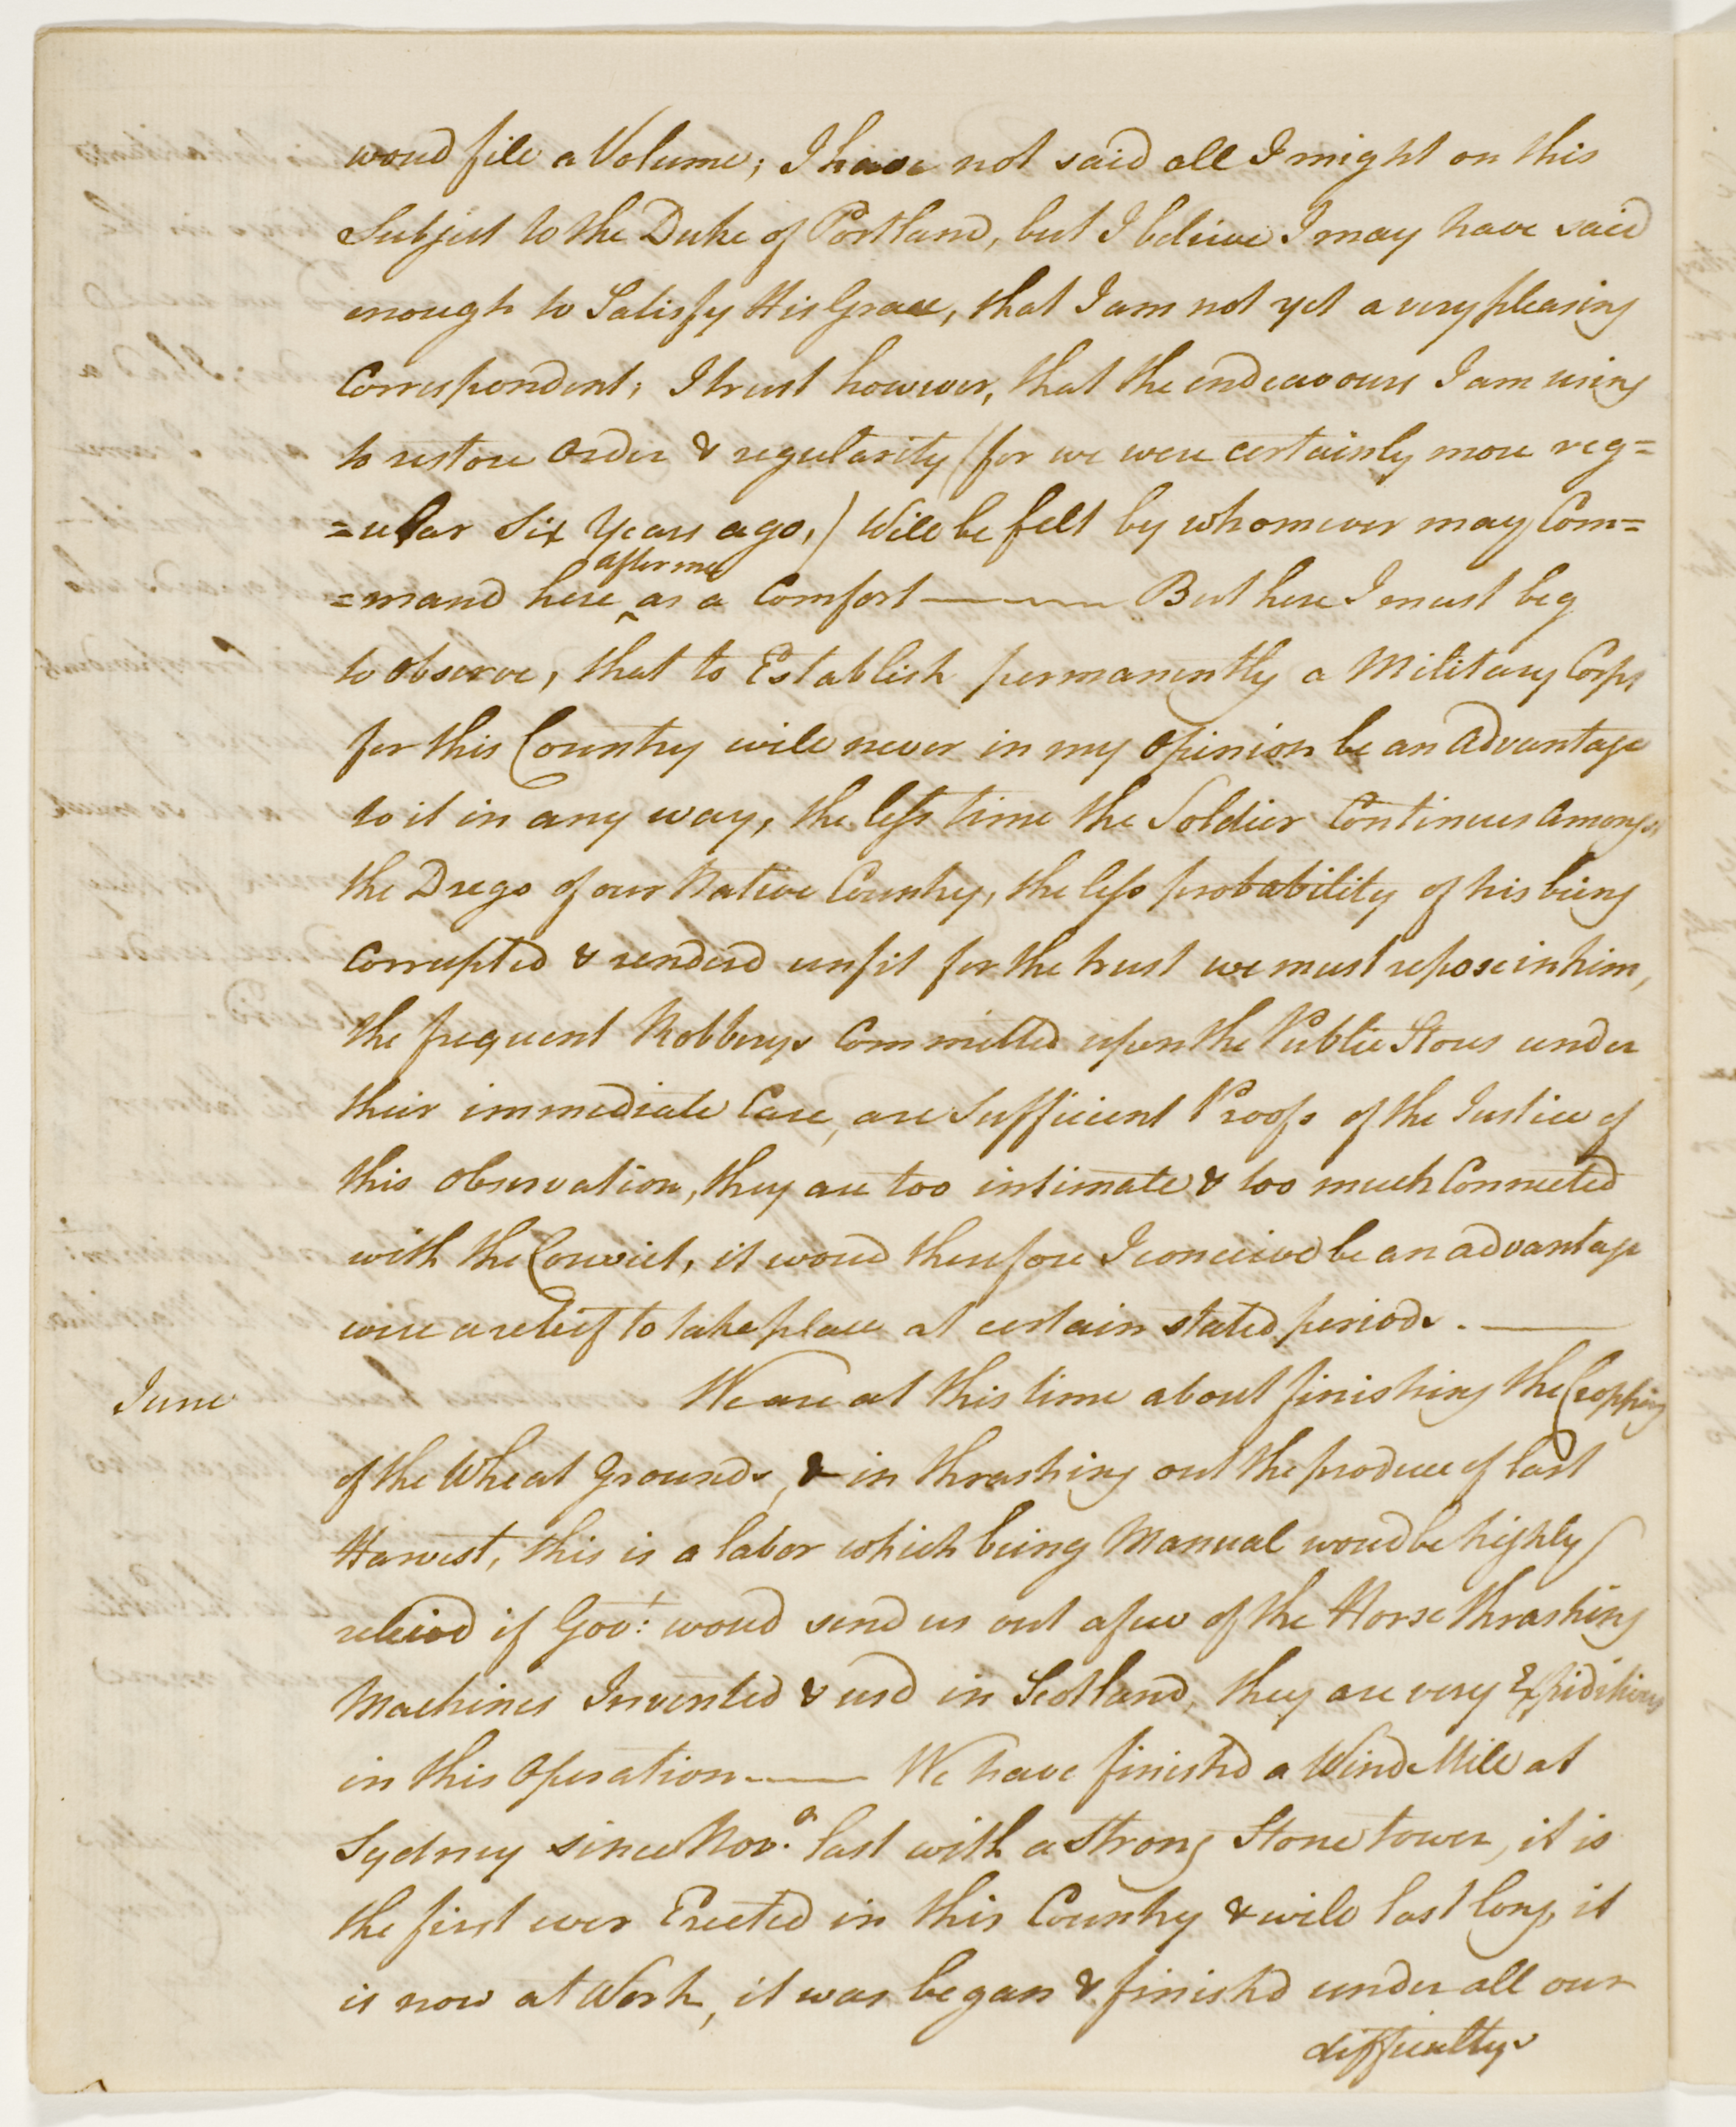 woud fill a Volume; I have not said all I might on this
Subject to the Duke of Portland, but I believe I may have said
enough to Satisfy His Grace, that I am not yet a very pleasing
Correspondent; I trust however, that the endeavours I am using
to restore Order & regularity (for we were certainly more reg=
=ular Six Years ago,) Will be felt by whomever may Com=
after me
=mand here ^ as a Comfort ——— But here I must beg
to observe, that to Establish permanently a Military Corps
for this Country will never in my Opinion be an Advantage
to it in any way, the less time the Soldier Continues amongst
the Dregs of our Native Country, the less probability of his being
Corrupted & renderd unfit for the trust we must repose in him,
the frequent Robberys Committed upon the Public Stores under
their immediate Care, are Sufficient Proofs of the Justice of
this Observation, they are too intimate & too much Connected
with the Convict, it woud therefore I conceive be an advantage
were a relief to take place at certain stated periods. ———
June
We are at this time about finishing the Cropping
of the Wheat Grounds, & in thrashing out the produce of last
Harvest, this is a labor which being Manual woud be highly
relievd if Gov.t woud send us out a few of the Horse thrashing
Machines Invented & usd in Scotland, they are very Expiditious
in this Operation ——— We have finishd a Wind Mill at
Sydney since Nov.r last with a strong Stone tower, it is
the first ever Erected in this Country & will last long, it
is now at Work, it was began & finishd under all our
difficultys